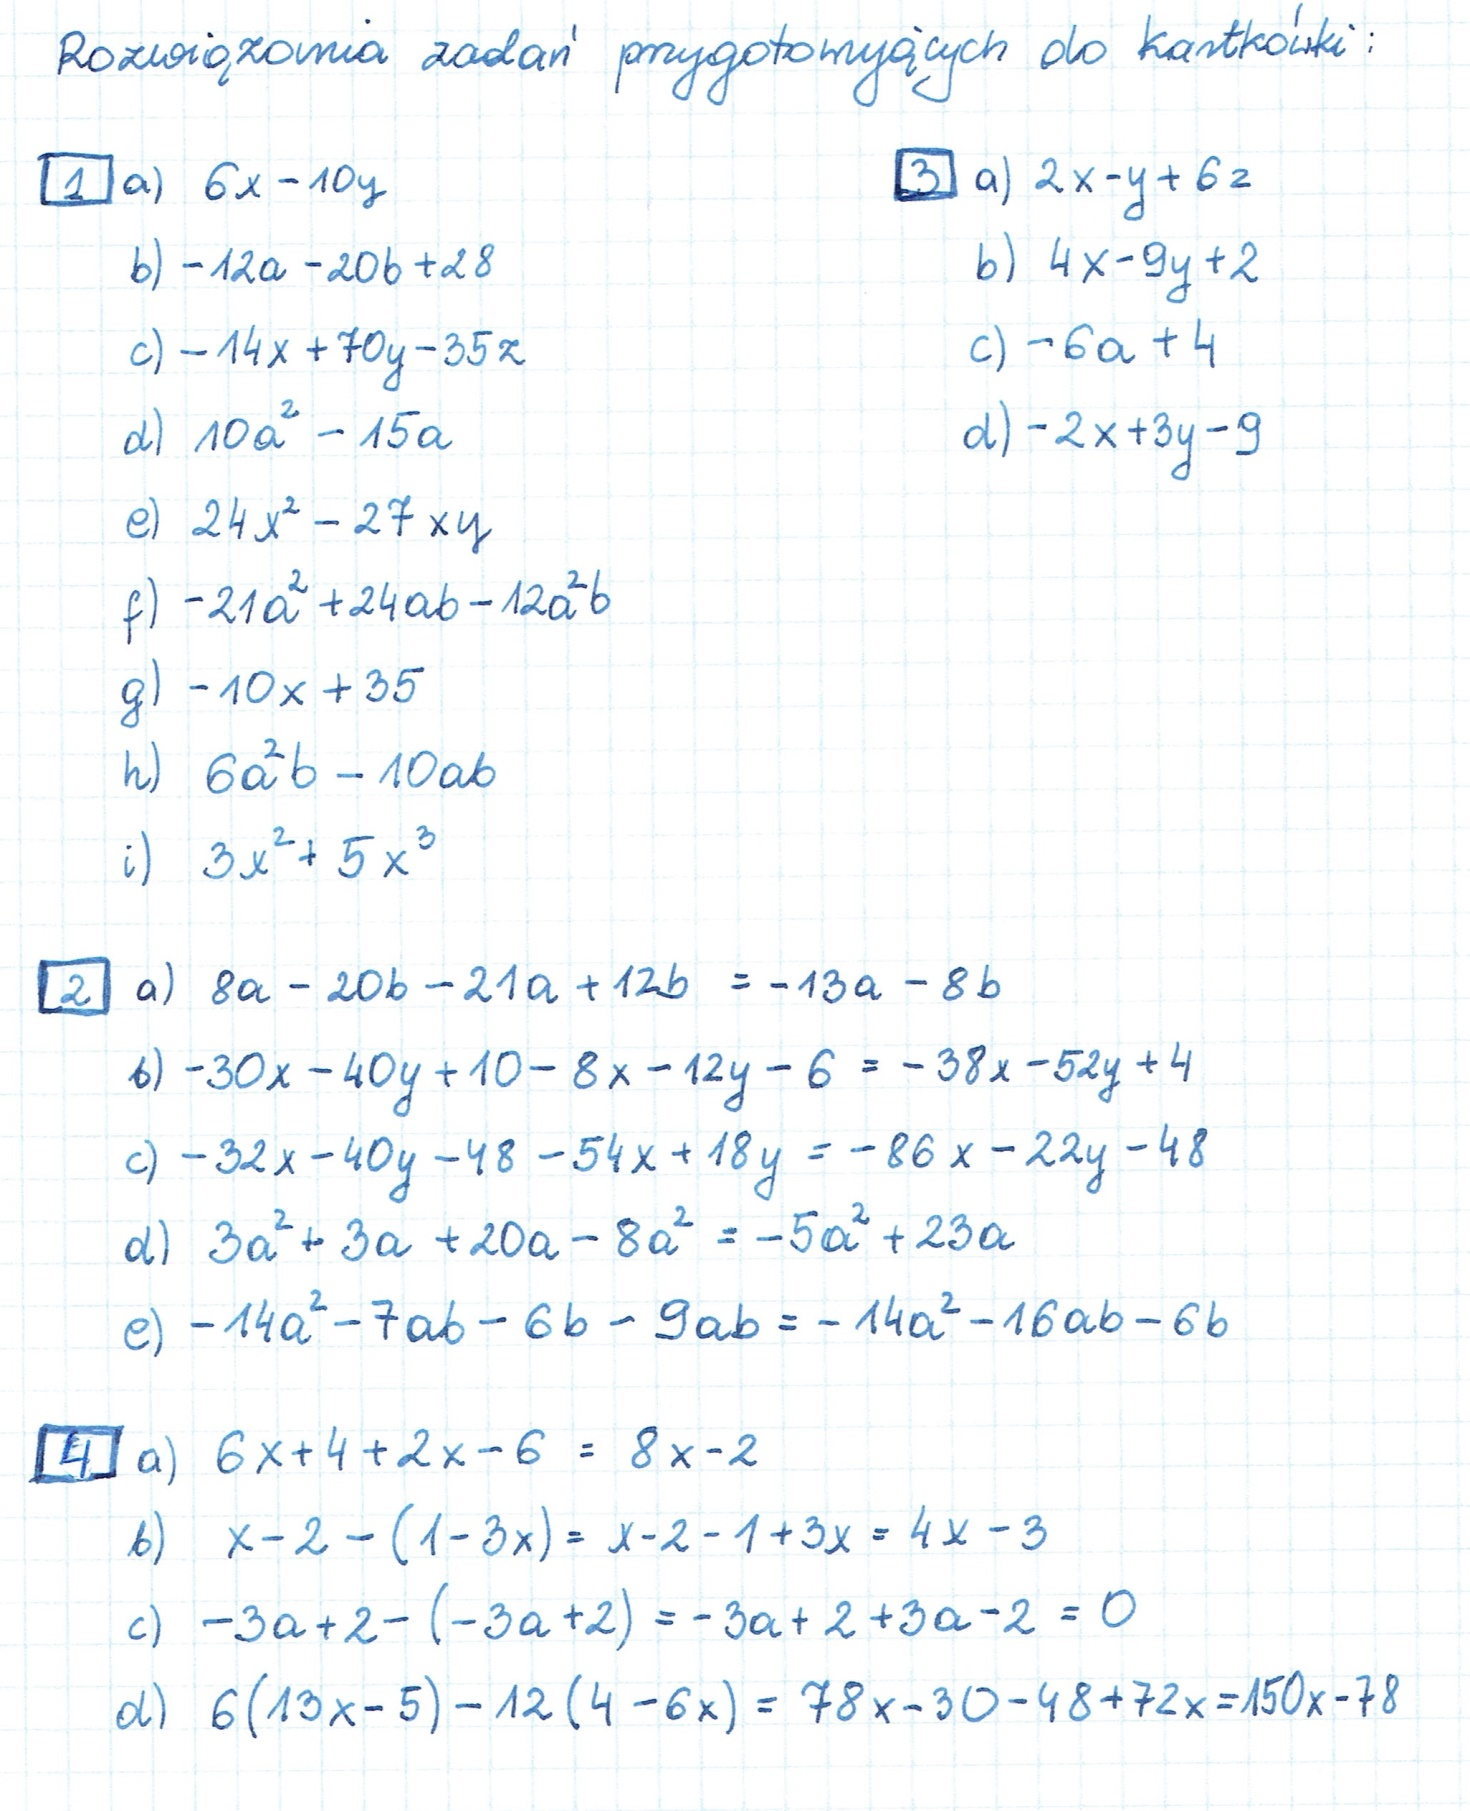 Rozwiązania zadań przygotowujących do kartkówki:
1 a) 6x - 10y
b) -12a - 20b + 28
c) -14x + 70y - 35z
d) 10a² - 15a
e) 24x² - 27xy
f) -21a² + 24ab - 12a²b
g) -10x + 35
h) 6a²b - 10ab
i) 3x² + 5x³
3 a) 2x - y + 6z
b) 4x - 9y + 2
c) -6a + 4
d) -2x + 3y - 9
2 a) 8a - 20b - 21a + 12b = -13a - 8b
b) -30x - 40y + 10 - 8x - 12y - 6 = -38x - 52y + 4
c) -32x - 40y - 48 - 54x + 18y = -86x - 22y - 48
d) 3a² + 3a + 20a - 8a² = -5a² + 23a
e) -14a² - 7ab - 6b - 9ab = -14a² - 16ab - 6b
4 a) 6x + 4 + 2x - 6 = 8x - 2
b) x - 2 - (1 - 3x) = x - 2 - 1 + 3x = 4x - 3
c) -3a + 2 - (-3a + 2) = -3a + 2 + 3a - 2 = 0
d) 6(13x - 5) - 12(4 - 6x) = 78x - 30 - 48 + 72x = 150x - 78